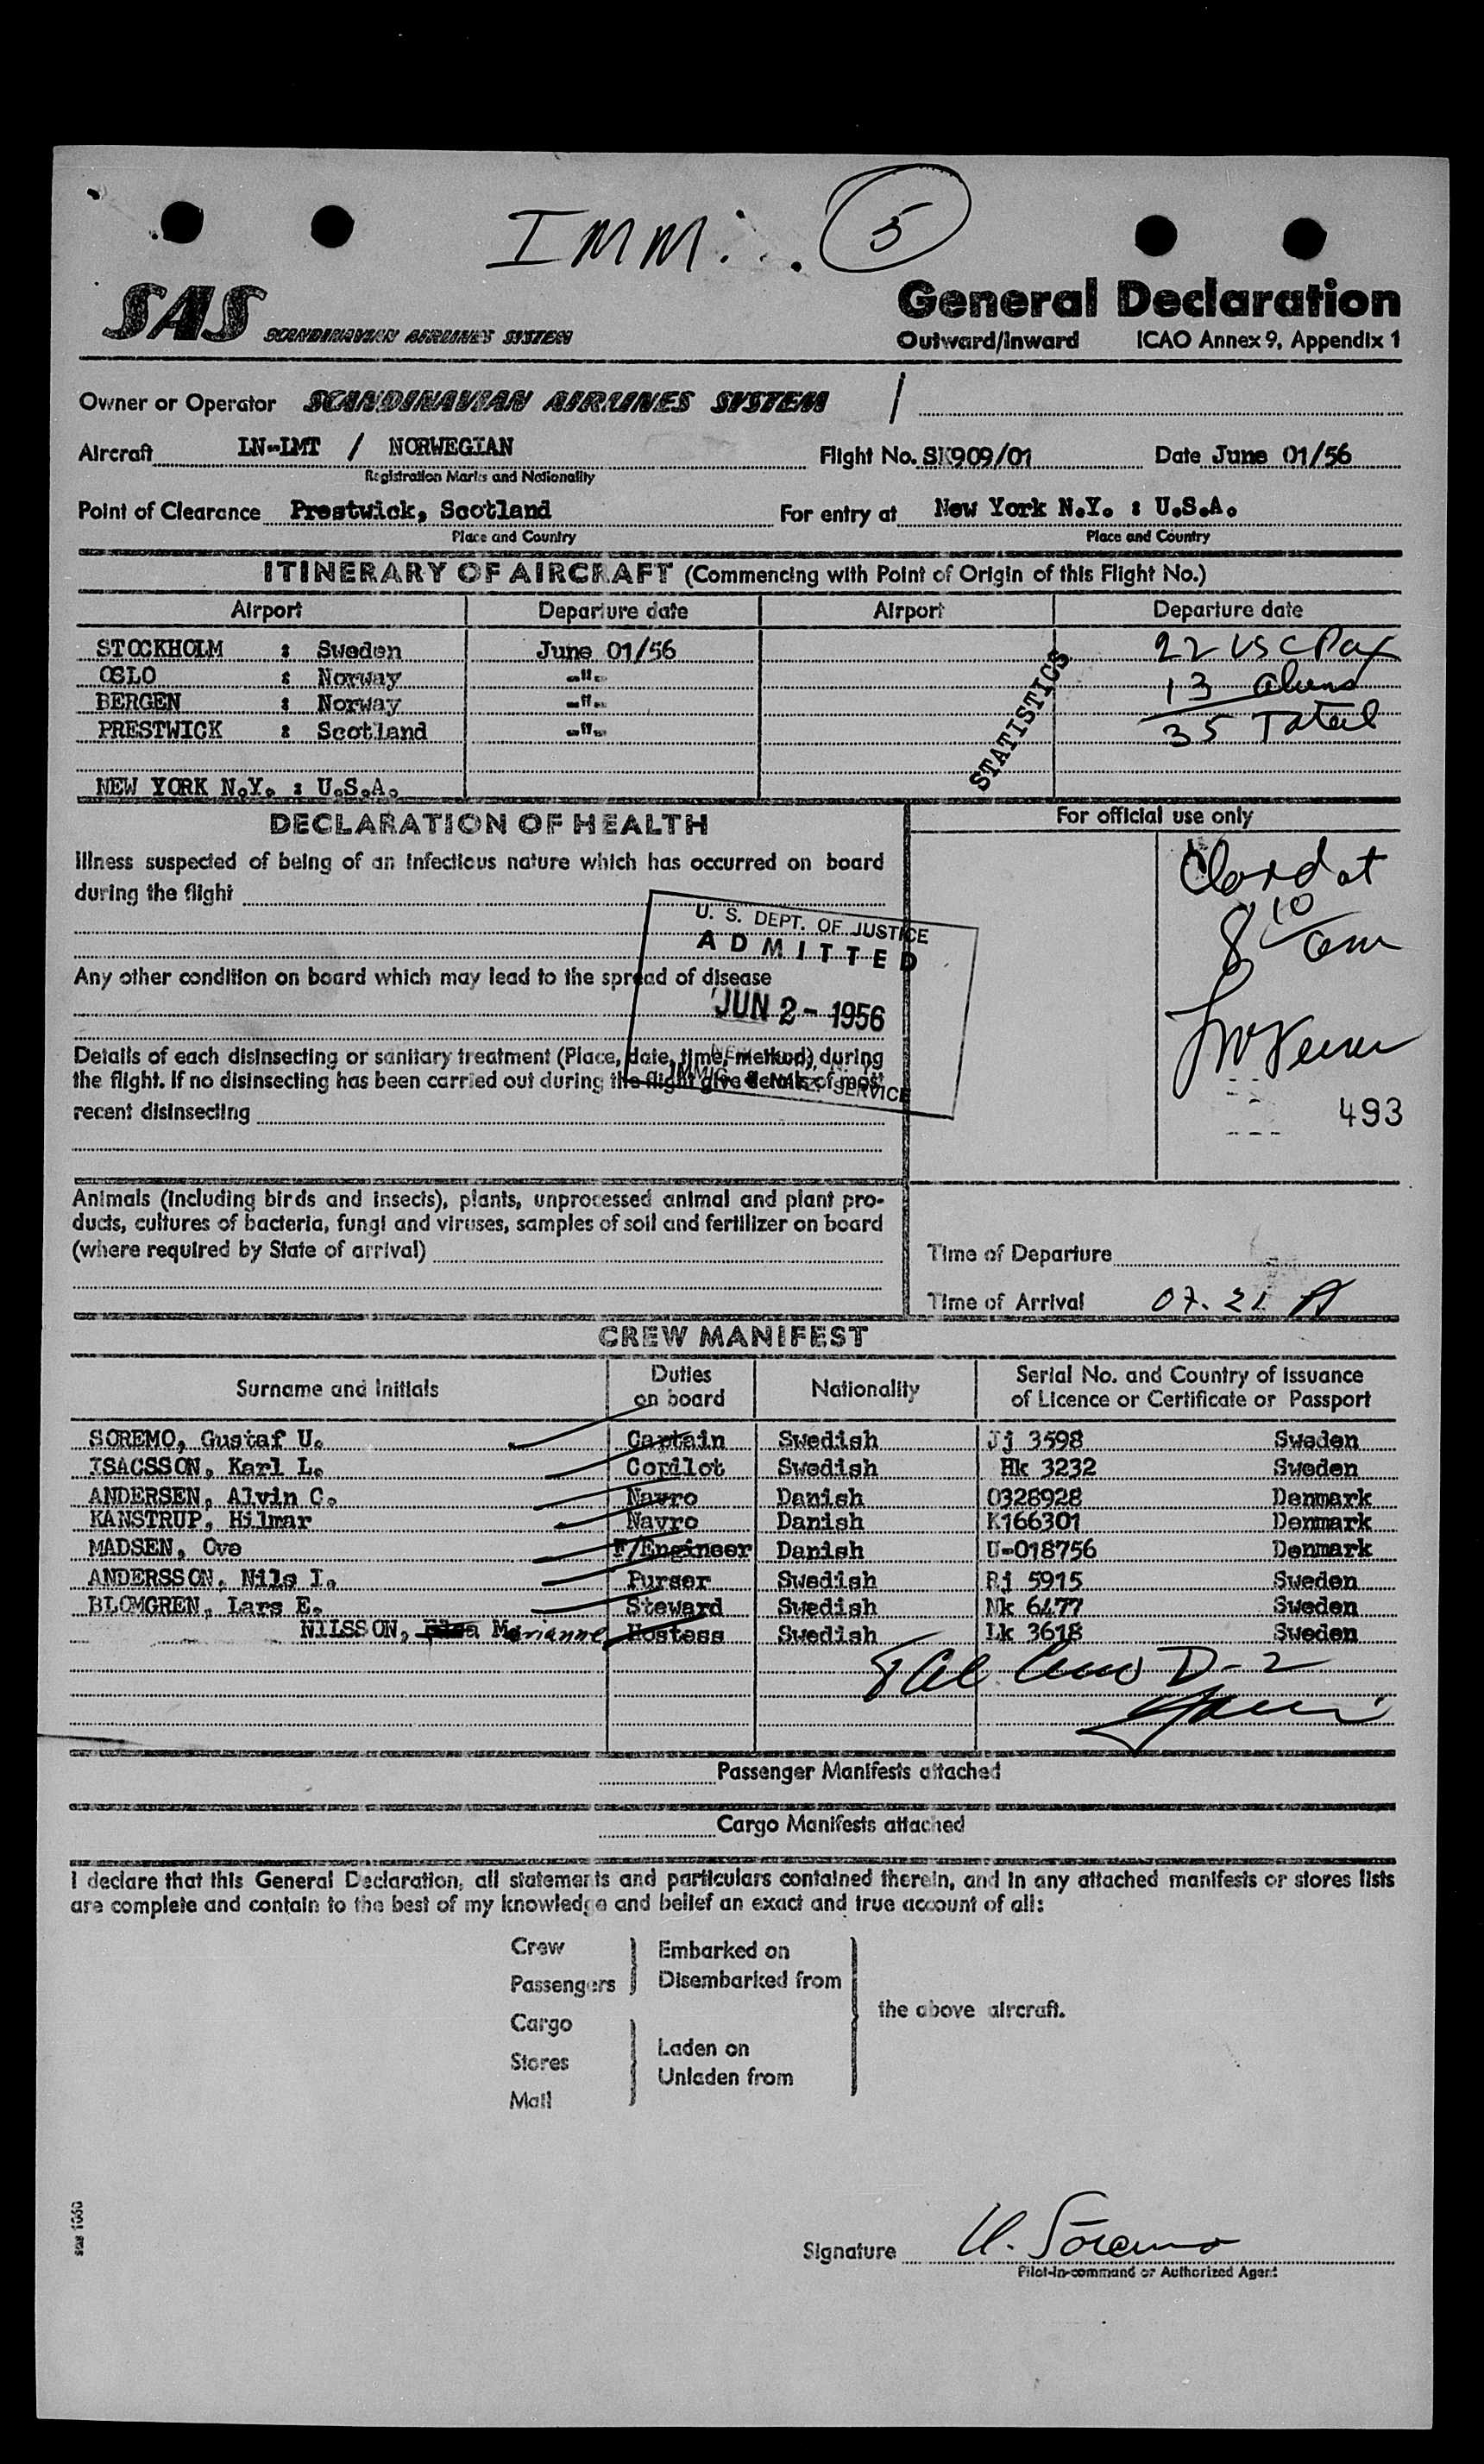 IMM. 5
SAS SCANDINAVIAN AIRLINES SYSTEM
General Declaration
Outward/Inward ICAO Annex 9, Appendix 1
Owner or Operator SCANDINAVIAN AIRLINES SYSTEM /
Aircraft LN-LMT / NORWEGIAN Flight No. SK909/01 Date June 01/56
Registration Marks and Nationality
Point of Clearance Prestwick, Scotland For entry at New York N.Y. : U.S.A.
Place and Country Place and Country
ITINERARY OF AIRCRAFT (Commencing with Point of Origin of this Flight No.)
Airport Departure date Airport Departure date
STOCKHOLM : Sweden June 01/56 22 USC Pax
OSLO : Norway -"- 13 aliens
BERGEN : Norway -"-
PRESTWICK : Scotland -"- 35 Total
STATISTICS
NEW YORK N.Y. : U.S.A.
DECLARATION OF HEALTH
For official use only
Illness suspected of being of an infectious nature which has occurred on board
during the flight
Any other condition on board which may lead to the spread of disease
Details of each disinsecting or sanitary treatment (Place, date, time, method) during
the flight. If no disinsecting has been carried out during the flight give details of most
recent disinsecting
U. S. DEPT. OF JUSTICE
ADMITTED
JUN 2 - 1956
SERVICE
at
8 10 am
493
Animals (including birds and insects), plants, unprocessed animal and plant pro-
ducts, cultures of bacteria, fungi and viruses, samples of soil and fertilizer on board
(where required by State of arrival)
Time of Departure
Time of Arrival 07.21 A
CREW MANIFEST
Surname and Initials Duties on board Nationality Serial No. and Country of Issuance of Licence or Certificate or Passport
SOREMO, Gustaf U. Captain Swedish Jj 3598 Sweden
ISACSSON, Karl L. Copilot Swedish Hk 3232 Sweden
ANDERSEN, Alvin C. Navro Danish 0328928 Denmark
KANSTRUP, Hilmar Navro Danish K166301 Denmark
MADSEN, Ove F/Engineer Danish U-018756 Denmark
ANDERSSON, Nils I. Purser Swedish Rj 5915 Sweden
BLOMGREN, Lars E. Steward Swedish Nk 6477 Sweden
NILSSON, Marianne Hostess Swedish Lk 3618 Sweden
D-2
Passenger Manifests attached
Cargo Manifests attached
I declare that this General Declaration, all statements and particulars contained therein, and in any attached manifests or stores lists
are complete and contain to the best of my knowledge and belief an exact and true account of all:
Crew
Passengers
Embarked on
Disembarked from
Cargo
Stores
Mail
Laden on
Unladen from
the above aircraft.
sas 1050
Signature U. Söremo
Pilot-in-command or Authorized Agent